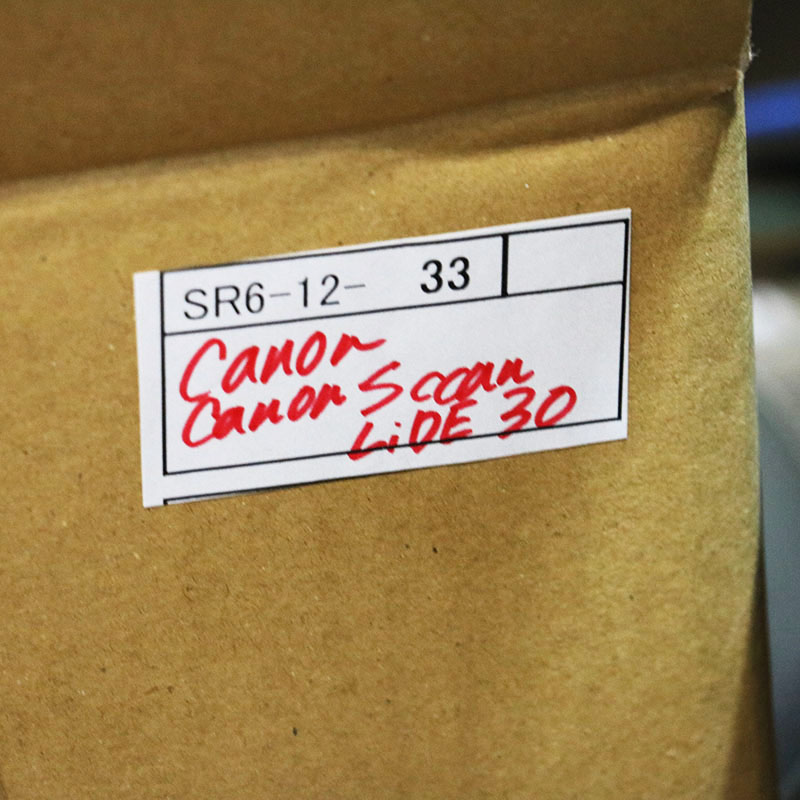 SR6-12- 33
Canon
Canon Sccan
LiDE 30